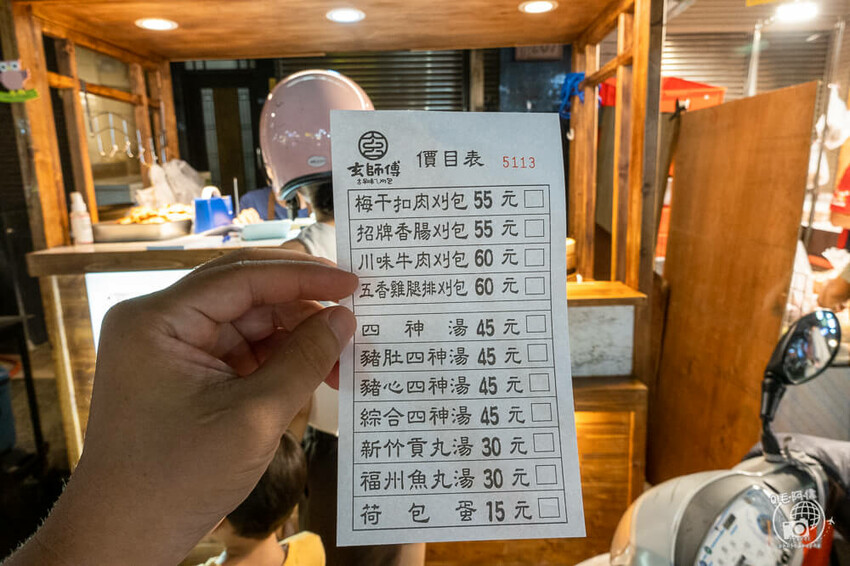 玄師傅
價目表 5113
梅干扣肉刈包 55 元
招牌香腸刈包 55 元
川味牛肉刈包 60 元
五香雞腿排刈包 60 元
四神湯 45 元
豬肚四神湯 45 元
豬心四神湯 45 元
綜合四神湯 45 元
新竹貢丸湯 30 元
福州魚丸湯 30 元
荷包蛋 15 元